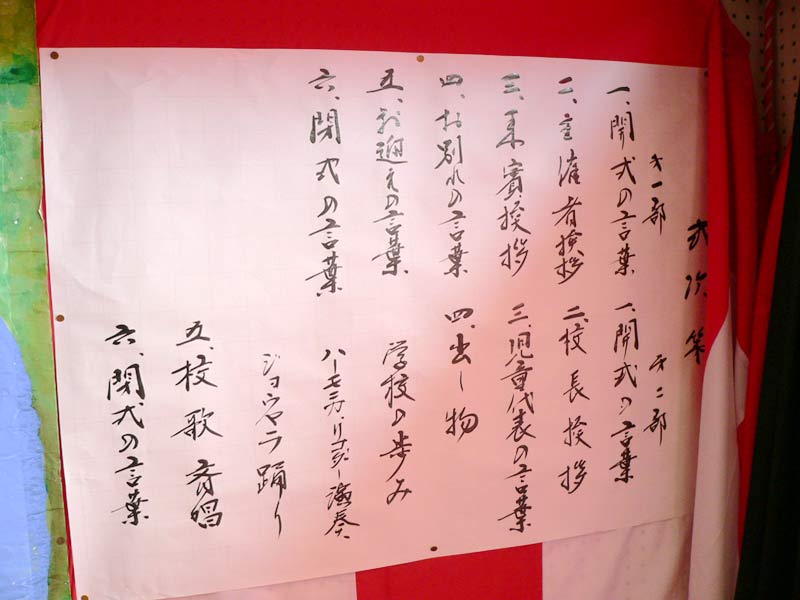 式次第
第一部
一、開式の言葉
二、主催者挨拶
三、来賓挨拶
四、お別れの言葉
五、お迎えの言葉
六、閉式の言葉
第二部
一、開式の言葉
二、校長挨拶
三、児童代表の言葉
四、出し物
学校の歩み
ハーモニカ、リコーダー演奏
ジョウヤラ踊り
五、校歌斉唱
六、閉式の言葉